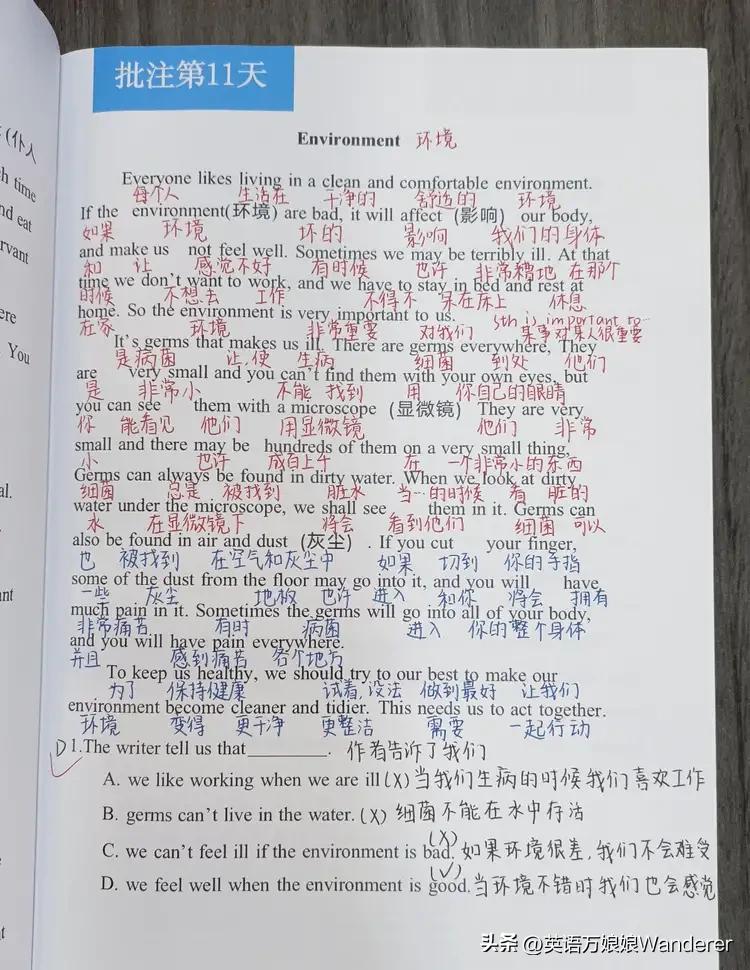 批注第11天
Environment 环境
Everyone likes living in a clean and comfortable environment.
每个人 生活在 干净的 舒适的 环境
If the environment(环境) are bad, it will affect (影响) our body,
如果 环境 坏的 影响 我们的身体
and make us not feel well. Sometimes we may be terribly ill. At that
和 让 感觉不好 有时候 也许 非常糟地 在那个
time we don't want to work, and we have to stay in bed and rest at
时候 不想去 工作 不得不 呆在床上 休息
home. So the environment is very important to us. sth is important to...
在家 环境 非常重要 对我们 某事对某人很重要
It's germs that makes us ill. There are germs everywhere, They
是病菌 让,使 生病 细菌 到处 他们
are very small and you can't find them with your own eyes, but
是 非常小 不能 找到 用 你自己的眼睛
you can see them with a microscope (显微镜) They are very
你 能看见 他们 用显微镜 他们 非常
small and there may be hundreds of them on a very small thing,
小 也许 成百上千 在 一个非常小的东西
Germs can always be found in dirty water. When we look at dirty
细菌 总是 被找到 脏水 当…的时候 看 脏的
water under the microscope, we shall see them in it. Germs can
水 在显微镜下 将会 看到他们 细菌 可以
also be found in air and dust (灰尘) . If you cut your finger,
也 被找到 在空气和灰尘中 如果 切到 你的手指
some of the dust from the floor may go into it, and you will have
一些 灰尘 地板 也许 进入 和你 将会 拥有
much pain in it. Sometimes the germs will go into all of your body,
非常痛苦 有时 病菌 进入 你的整个身体
and you will have pain everywhere.
并且 感到痛苦 各个地方
To keep us healthy, we should try to our best to make our
为了 保持健康 试着,没法 做到最好 让我们
environment become cleaner and tidier. This needs us to act together.
环境 变得 更干净 更整洁 需要 一起行动
D 1.The writer tell us that________. 作者告诉了我们
A. we like working when we are ill (X) 当我们生病的时候我们喜欢工作
B. germs can't live in the water. (X) 细菌不能在水中存活
C. we can't feel ill if the environment is bad. (X) 如果环境很差,我们不会难受
D. we feel well when the environment is good. (✓) 当环境不错时我们也会感觉
头条 @英语万娘娘Wanderer
(仆人
h time
nd eat
rvant
ere
You
al.
nt